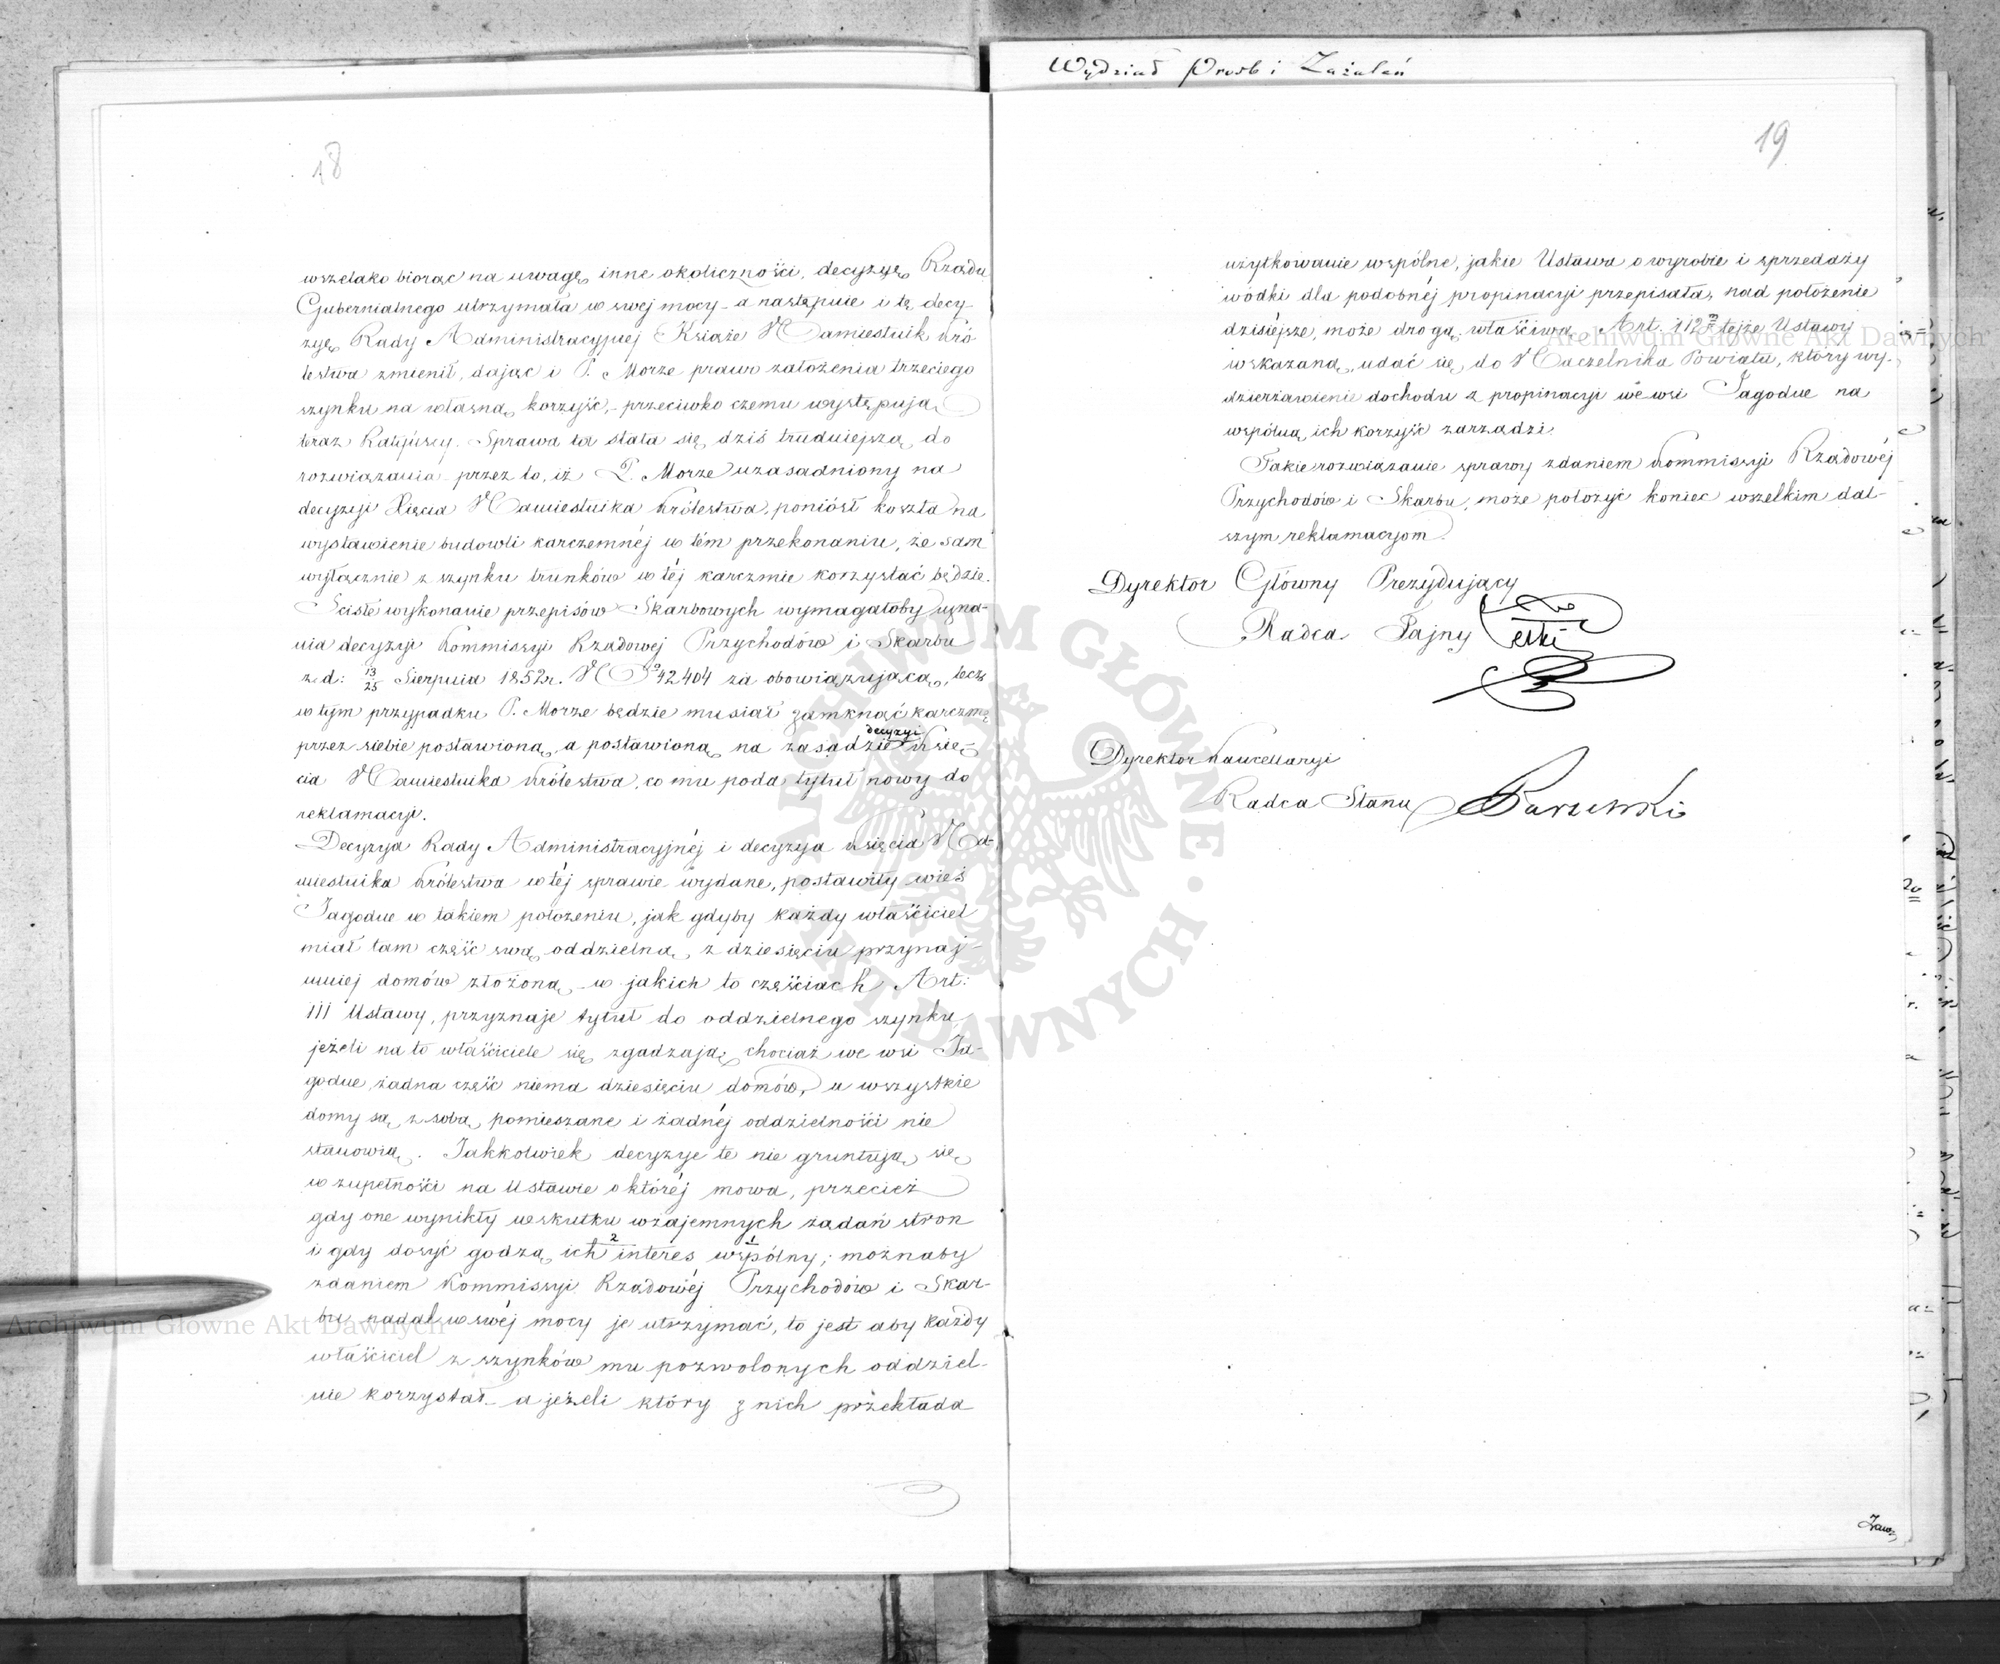 18
wszelako biorąc na uwagę inne okoliczności, decyzyę Rządu
Gubernialnego utrzymała w swej mocy - a następnie i tę decy-
zyę Rady Administracyjnej Książe Namiestnik Kró-
lestwa zmienił, dając i P. Morze prawo założenia trzeciego
szynku na własną korzyść, - przeciwko czemu występują
teraz Sprawa ta stała się dziś trudniejszą do
rozwiązania przez to, iż P. Morze uzasadniony na
decyzyi Xięcia Namiestnika Królestwa, poniósł koszta na
wystawienie budowli karczemnéj w tém przekonaniu, że sam
wyłącznie z szynku trunków w téj karczmie korzystać będzie.
Sciste wykonanie przepisów Skarbowych wymagałoby uzna-
nia decyzyi Kommissyi Rządowej Przychodów i Skarbu
z d: 13/25 Sierpnia 1852r. No 42404 za obowiązującą, lecz
w tym przypadku P. Morze będzie musiał zamknąć karczmę
przez siebie postawioną, a postawioną na zasadzie decyzyi Księ-
cia Namiestnika Królestwa, co mu poda tytuł nowy do
reklamacyi.
Decyzya Rady Administracyjnéj i decyzya Księcia Na-
miestnika Królestwa w téj sprawie wydane, postawiły wieś
Jagodne w takiem położeniu, jak gdyby każdy właściciel
miał tam część swą oddzielną, z dziesięciu przynaj-
mniej domów złożoną, - w jakich to częściach Art:
111 Ustawy, przyznaje tytuł do oddzielnego szynku,
jeżeli na to właściciele się zgadzają, chociaż we wsi Ja-
godne, żadna część niema dziesięciu domów, a wszystkie
domy są z sobą pomieszane i żadnéj oddzielności nie
stanowią. Jakkolwiek decyzye te nie gruntują się
w zupełności na Ustawie o któréj mowa, przecież
gdy one wynikły wskutku wzajemnych żądań stron
i gdy dosyć godzą ich 2 interes 1 wspólny; możnaby
zdaniem Kommissyi Rządowéj Przychodów i Skar-
bu nadal w swéj mocy je utrzymać, to jest aby każdy
właściciel z szynków mu pozwolonych oddziel-
nie korzystał - a jeżeli który z nich przekłada
Wydział Prośb i Zażaleń
19
użytkowanie wspólne, jakie Ustawa o wyrobie i sprzedaży
wódki dla podobnéj propinacyi przepisała, nad położenie
dzisiejsze, może drogą właściwą Art. 112m tejże Ustawy
wskazaną, udać się do Naczelnika Powiatu, który wy-
dzierżawienie dochodu z propinacyi we wsi Jagodne na
wspólną ich korzyść zarządzi.
Takie rozwiązanie sprawy zdaniem Kommissyi Rządowéj
Przychodów i Skarbu, może położyć koniec wszelkim dal-
szym reklamacyom.
Dyrektor Główny Prezydujący
Radca Tajny
Dyrektor Kancellaryi
Radca Stanu
Archiwum Główne Akt Dawnych
Archiwum Główne Akt Dawnych
ARCHIWUM GŁÓWNE
AKT DAWNYCH